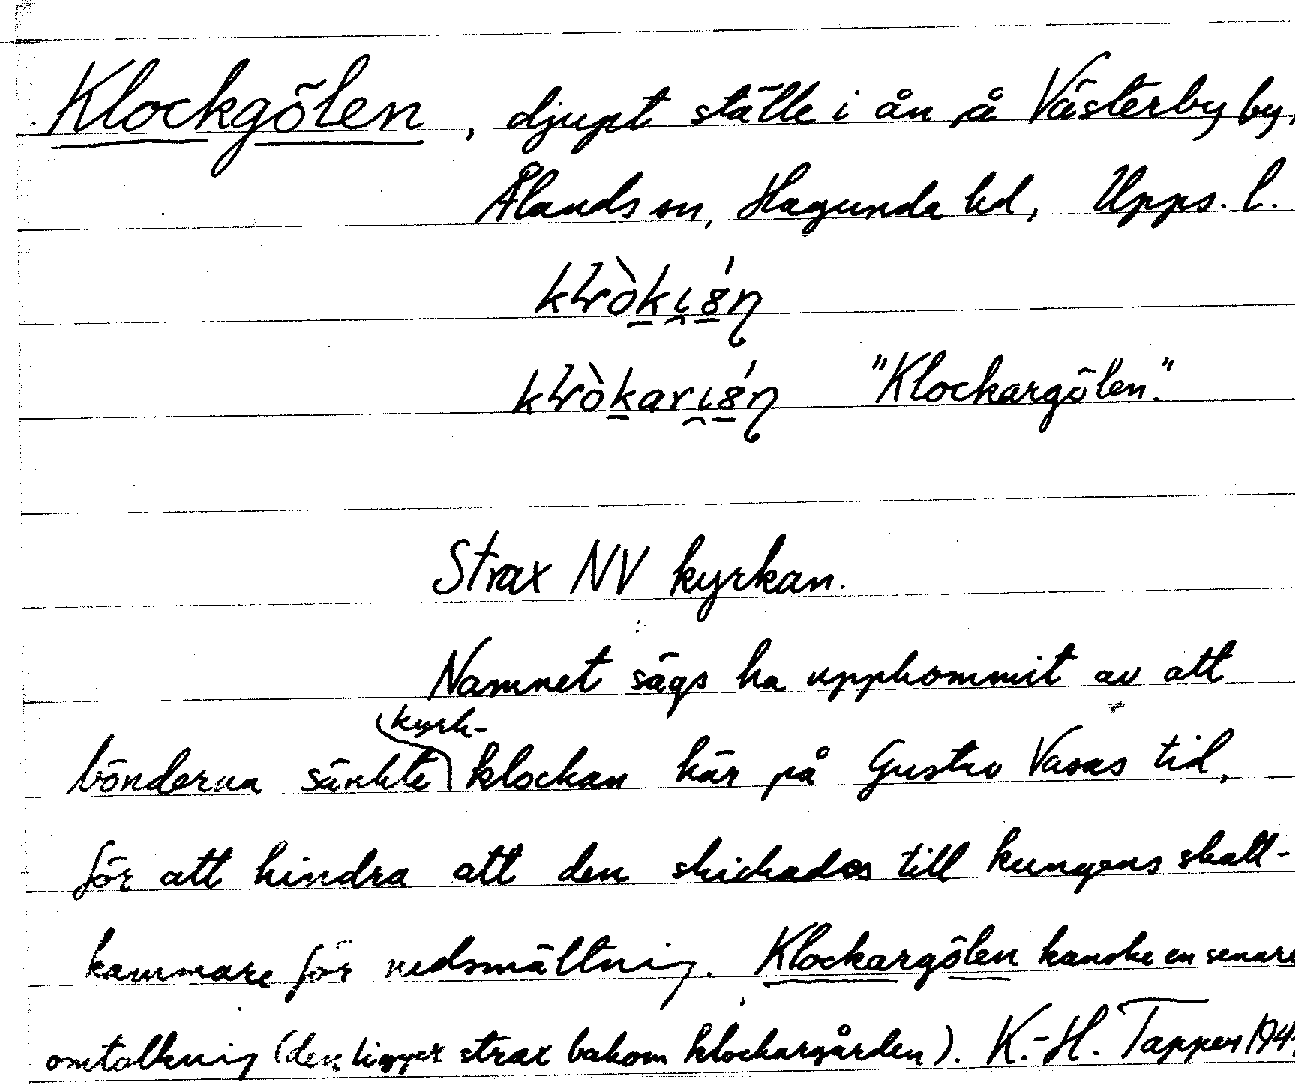 Klockgölen, djupt ställe i ån å Västerby by,
Ålands sn, Hagunda hd, Upps. l.
"Klockargölen."
Strax NV kyrkan.
Namnet sägs ha uppkommit av att
kyrk-
bönderna sänkte klockan här på Gustav Vasas tid,
för att hindra att den skickades till kungens skatt-
kammare för nedsmältning. Klockargölen kanske en senare
omtolkning (den ligger strax bakom klockargården). K.-H. Tapper